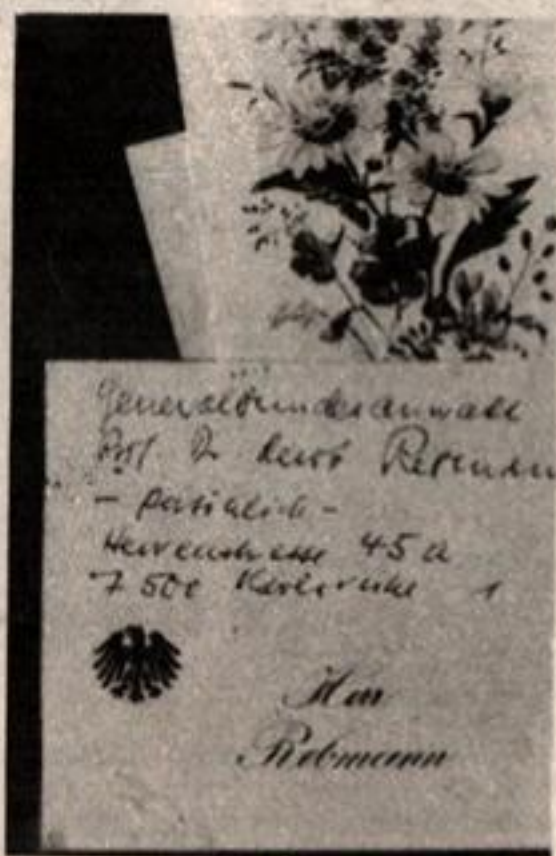 Generalbundesanwalt
Prof. Dr. Rebmann
- persönlich -
Herrenstrasse 45 a
7500 Karlsruhe 1
Herr
Rebmann